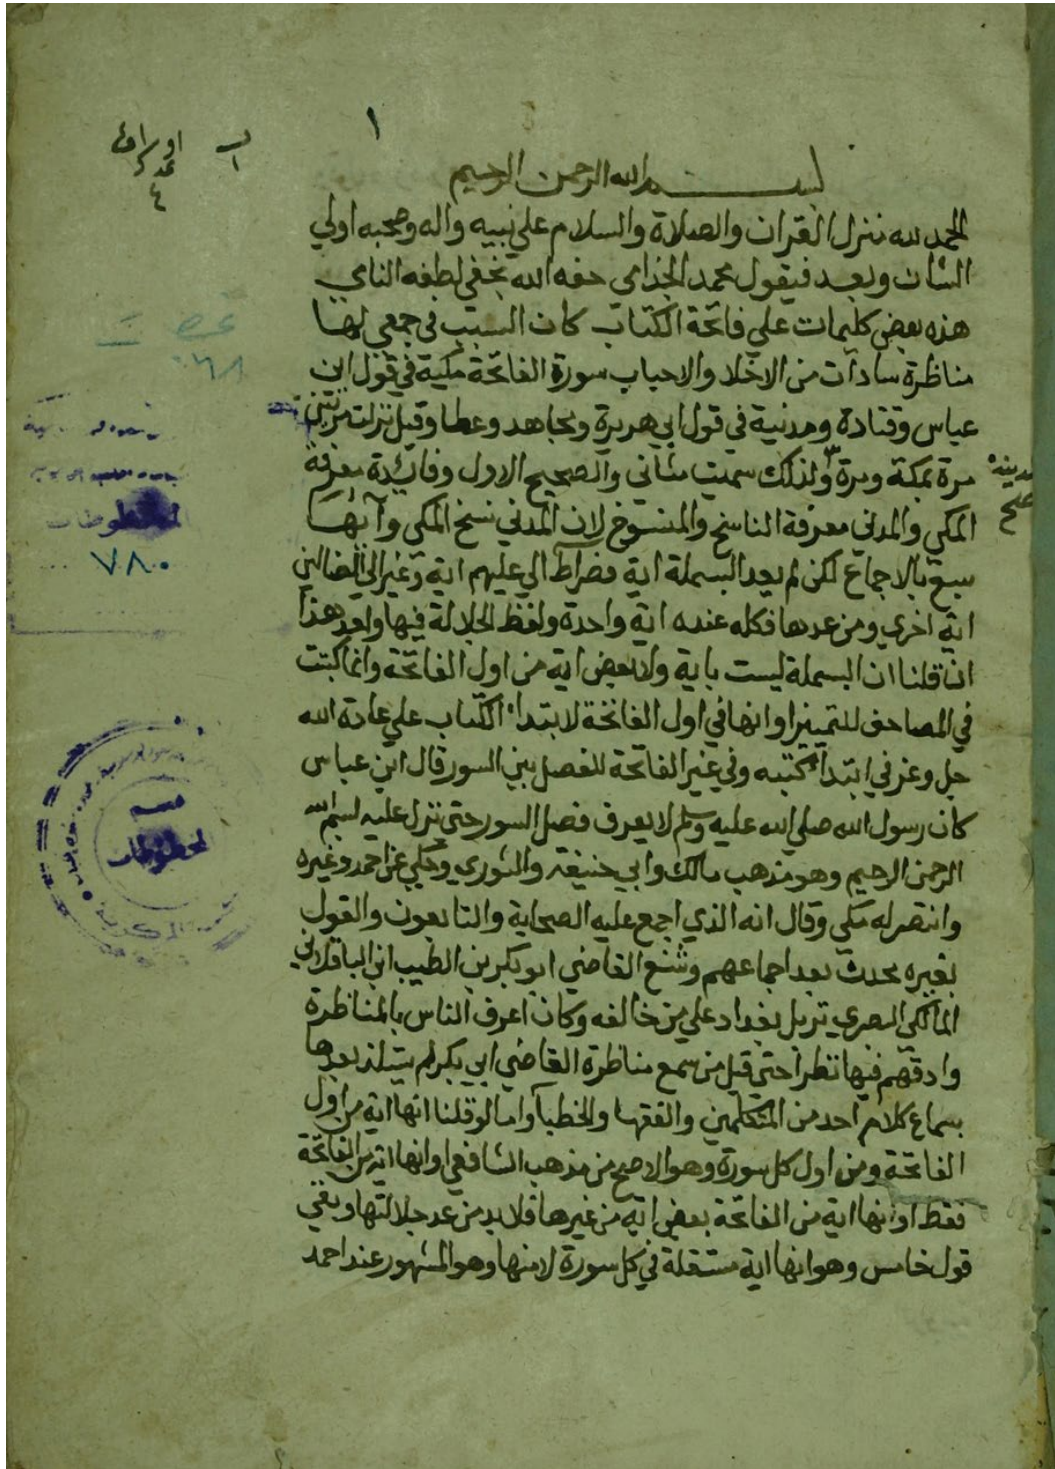 ١
اوراق
عدد
٤
بسم الله الرحمن الرحيم
الحمد لله منزل القران والصلاة والسلام علي نبيه واله وصحبه اولي
الشان وبعد فيقول محمد حفه الله بخفي لطفه
هذه بعض كليمات علي فاتحة الكتاب كان السبب في جمعي لها
مناظرة سادات من الاخلا والاحباب سورة الفاتحة مكية في قول ابن
عباس وقتادة ومدنية في قول ابي هريرة ومجاهد وعطا وقيل نزلت مرتين
مرة بمكة ومرة ولذلك سميت مثاني والصحيح الاول وفائدة معرفة
بمدينة
صح
المكي والمدني معرفة الناسخ والمنسوخ لان المدني نسخ المكي وآيها
سبع بالاجماع لكن لم يعد البسملة اية فصراط الي عليهم اية وغير الي الضالين
اية اخري ومن عدها فكله عنده اية واحدة ولفظ الجلالة فيها واحد هذا
ان قلنا ان البسملة ليست باية ولا بعض اية من اول الفاتحة وانما كتبت
في المصاحف للتمييز او انها في اول الفاتحة لابتداء الكتاب علي عادة الله
جل وعز في ابتداء كتبه وفي غير الفاتحة للفصل بين السور قال ابن عباس
كان رسول الله صلي الله عليه وسلم لا يعرف فصل السور حتي تنزل عليه بسم الله
الرحمن الرحيم وهو مذهب مالك وابي حنيفة والثوري وحكي عن احمد وغيره
وانتصر له مكي وقال انه الذي اجمع عليه الصحابة والتابعون والقول
بغيره محدث بعد اجماعهم وشنع القاضي ابو بكر بن الطيب ابن الباقلاني
المالكي البصري نزيل بغداد علي من خالفه وكان اعرف الناس بالمناظرة
وادقهم فيها نظرا حتي قيل من سمع مناظرة القاضي ابي بكر لم يستلذ بعدها
بسماع كلام احد من المتكلمين والفقها والخطبا واما لو قلنا انها اية من اول
الفاتحة ومن اول كل سورة وهو الاصح من مذهب الشافعي او انها اية من الفاتحة
فقط او انها اية من الفاتحة بعض اية من غيرها فلابد من عد جلالتها وبقي
قول خامس وهو انها اية مستقلة في كل سورة لا منها وهو المشهور عند احمد
المخطوطات
٧٨٠
قسم
المخطوطات